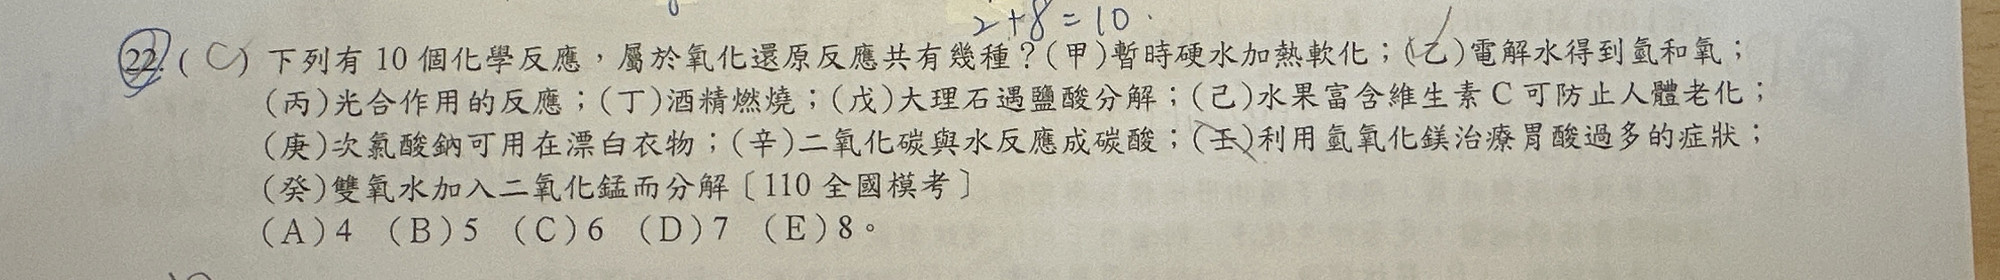 2+8=10
22.(C) 下列有 10 個化學反應，屬於氧化還原反應共有幾種？(甲)暫時硬水加熱軟化；(乙)電解水得到氫和氧；
(丙)光合作用的反應；(丁)酒精燃燒；(戊)大理石遇鹽酸分解；(己)水果富含維生素 C 可防止人體老化；
(庚)次氯酸鈉可用在漂白衣物；(辛)二氧化碳與水反應成碳酸；(壬)利用氫氧化鎂治療胃酸過多的症狀；
(癸)雙氧水加入二氧化錳而分解〔110 全國模考〕
(A)4 (B)5 (C)6 (D)7 (E)8。